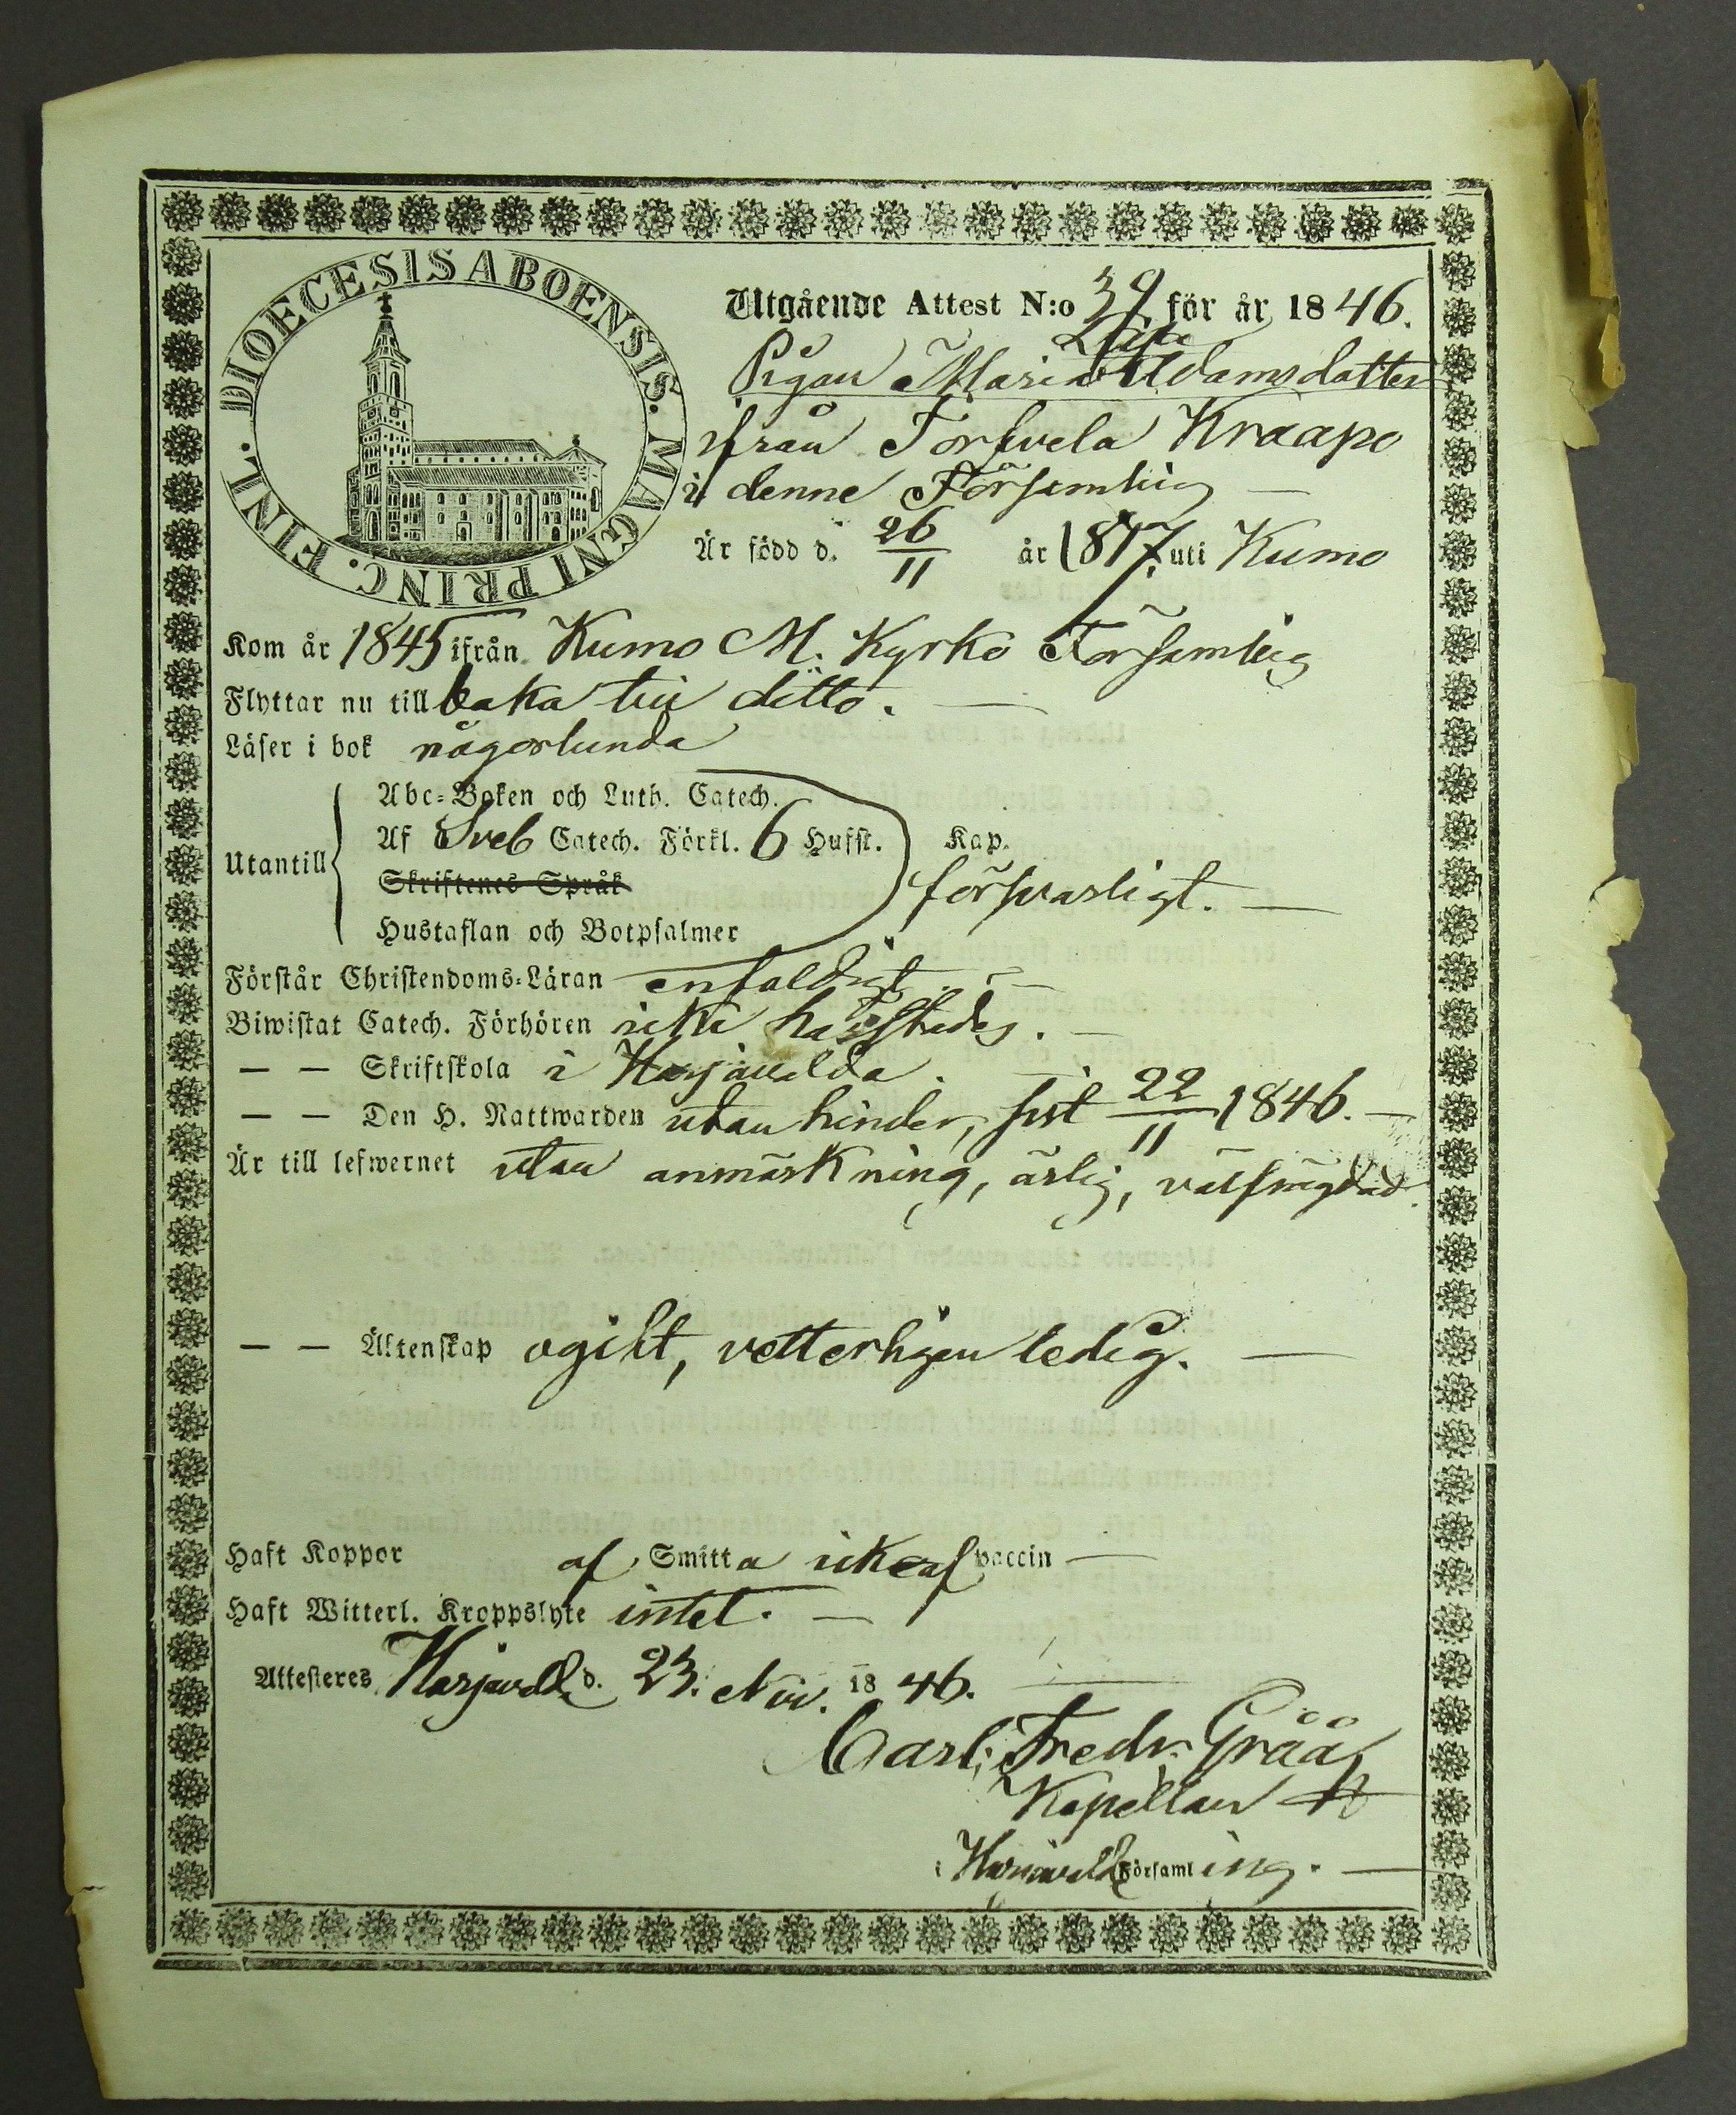 DIOECESIS ABOENSIS. MAGNI PRINC. FINL.
Utgående Attest N:o 39 för år 1846.
Pigan Maria Adamsdotter
ifrån Torfvela Kraapo
i denne Församling
Är född d. 26/11 år 1817 uti Kumo
Kom år 1845 ifrån Kumo M. Kyrko Församling
Flyttar nu till baka till ditto.
Läser i bok någorlunda
Abc-Boken och Luth. Catech.
Af Sveb Catech. Förkl. 6 Hufst. Kap.
Utantill
Skriftenes Språk
försvarligt.
Hustaflan och Botpsalmer
Förstår Christendoms-Läran enfaldigt
Biwistat Catech. Förhören icke härstädes.
— — Skriftskola i Harjavalda.
— — Den H. Nattwarden utan hinder, sist 22/11 1846.
Är till lefwernet utan anmärkning, ärlig, välfrägdad.
— — Äktenskap ogift, vetterligen ledig.
Haft Koppor af Smitta icke af vaccin
Haft Witterl. Kroppslyte intet.
Attesteras Harjavalda d. 23. Nov. 1846.
Carl Fredr. Gråå
Kapellan
i Harjavalda Församling.